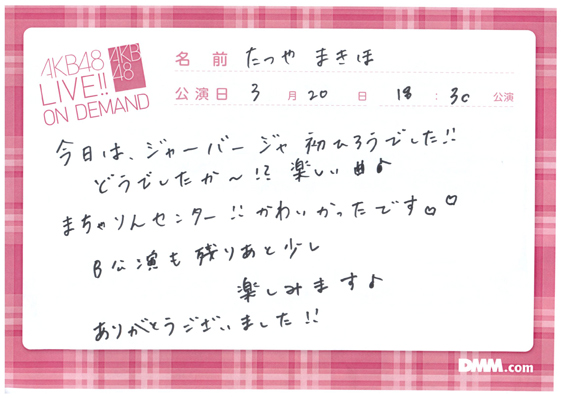 AKB48
LIVE!!
ON DEMAND
AKB
48
名前 たつや まきほ
公演日 3月20日 18:30公演
今日は、ジャーバージャ初ひろうでした!!
どうでしたか〜!? 楽しい曲♪
まちゃりんセンター!! かわいかったです♡♡
B公演も残りあと少し
楽しみます♪
ありがとうございました!!
DMM.com